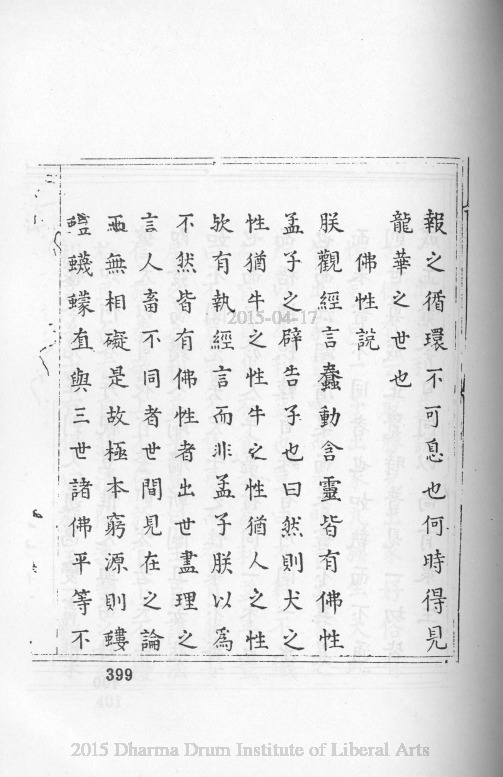 報之循環不可息也何時得見
龍華之世也
佛性說
朕觀經言蠢動含靈皆有佛性
孟子之辟告子也曰然則犬之
性猶牛之性牛之性猶人之性
欤有執經言而非孟子朕以爲
不然皆有佛性者出世盡理之
言人畜不同者世間見在之論
兩無相礙是故極本窮源則螻
蟻蠛蠓直與三世諸佛平等不
399
2015-04-17
2015 Dharma Drum Institute of Liberal Arts